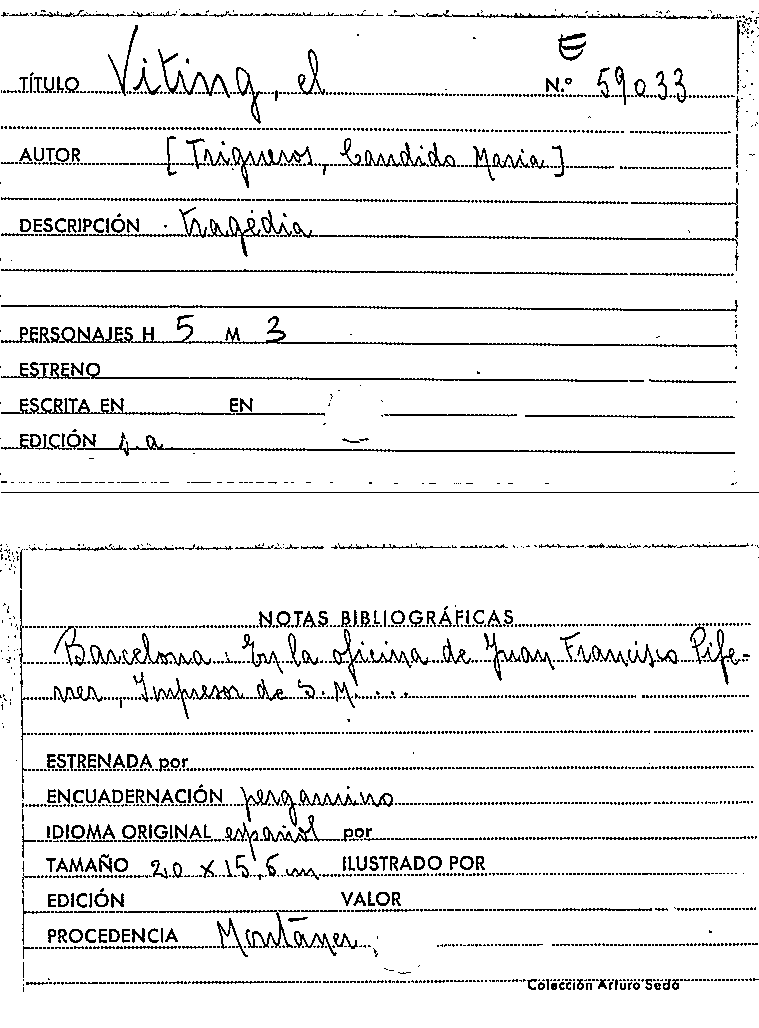 TÍTULO Viting, el N.º 59033
AUTOR [Trigueros, Candido Maria]
DESCRIPCIÓN · tragédia
PERSONAJES H 5 M 3
ESTRENO
ESCRITA EN EN
EDICIÓN s.a
NOTAS BIBLIOGRÁFICAS
Barcelona: En la oficina de Juan Francisco Pife-
rrer, Impresor de S.M. ...
ESTRENADA por
ENCUADERNACIÓN pergamino
IDIOMA ORIGINAL español por
TAMAÑO 20 x 15,5 cm ILUSTRADO POR
EDICIÓN VALOR
PROCEDENCIA Montaner
Colección Arturo Sedó